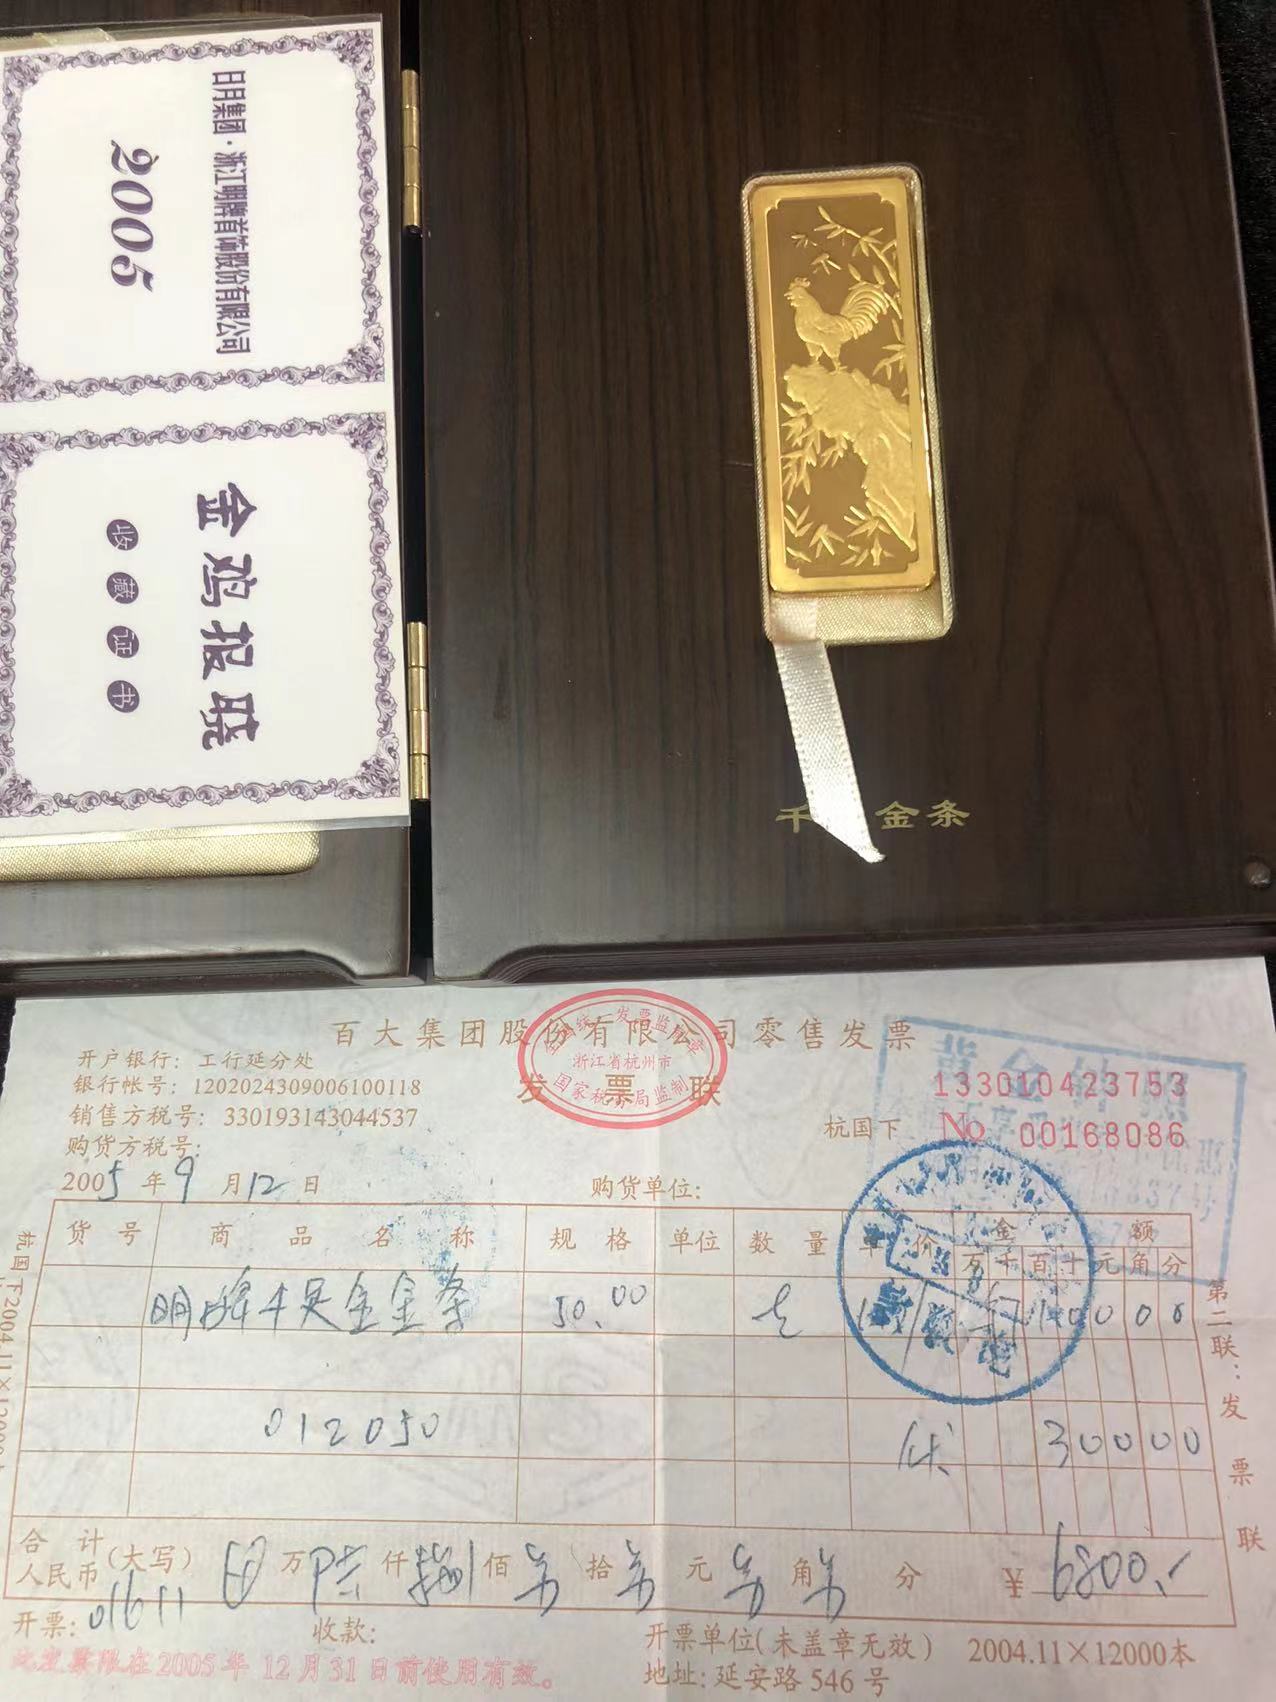 日月集团·浙江明牌首饰股份有限公司
2005
金鸡报晓
收藏证书
千 金条
百大集团股份有限公司零售发票
发票联
全国统一发票监制章
浙江省杭州市
国家税务局监制
开户银行：工行延分处
银行帐号：1202024309006100118
销售方税号：330193143044537
购货方税号：
133010423753
杭国下 No 00168086
2005年9月12日 购货单位：
货号 商品名称 规格 单位 数量 单价 金额
万千百十元角分
明牌千足金金条 50.00
012050
30000
合计
人民币(大写) 万陆仟捌佰 拾 元 角 分 ¥6800.-
开票：01611 收款： 开票单位(未盖章无效) 2004.11×12000本
此发票限在2005年12月31日前使用有效。
地址：延安路546号
第二联：发票联
杭国下2004.11×12000
黄金